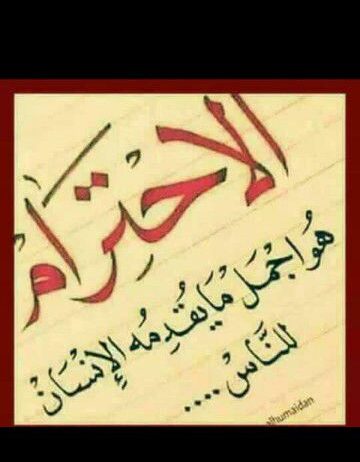 الاحترام
هُو اجْمَل مَايُقدِمُه الإِنْسَانْ
للنَّاسْ ....
alhumaidan